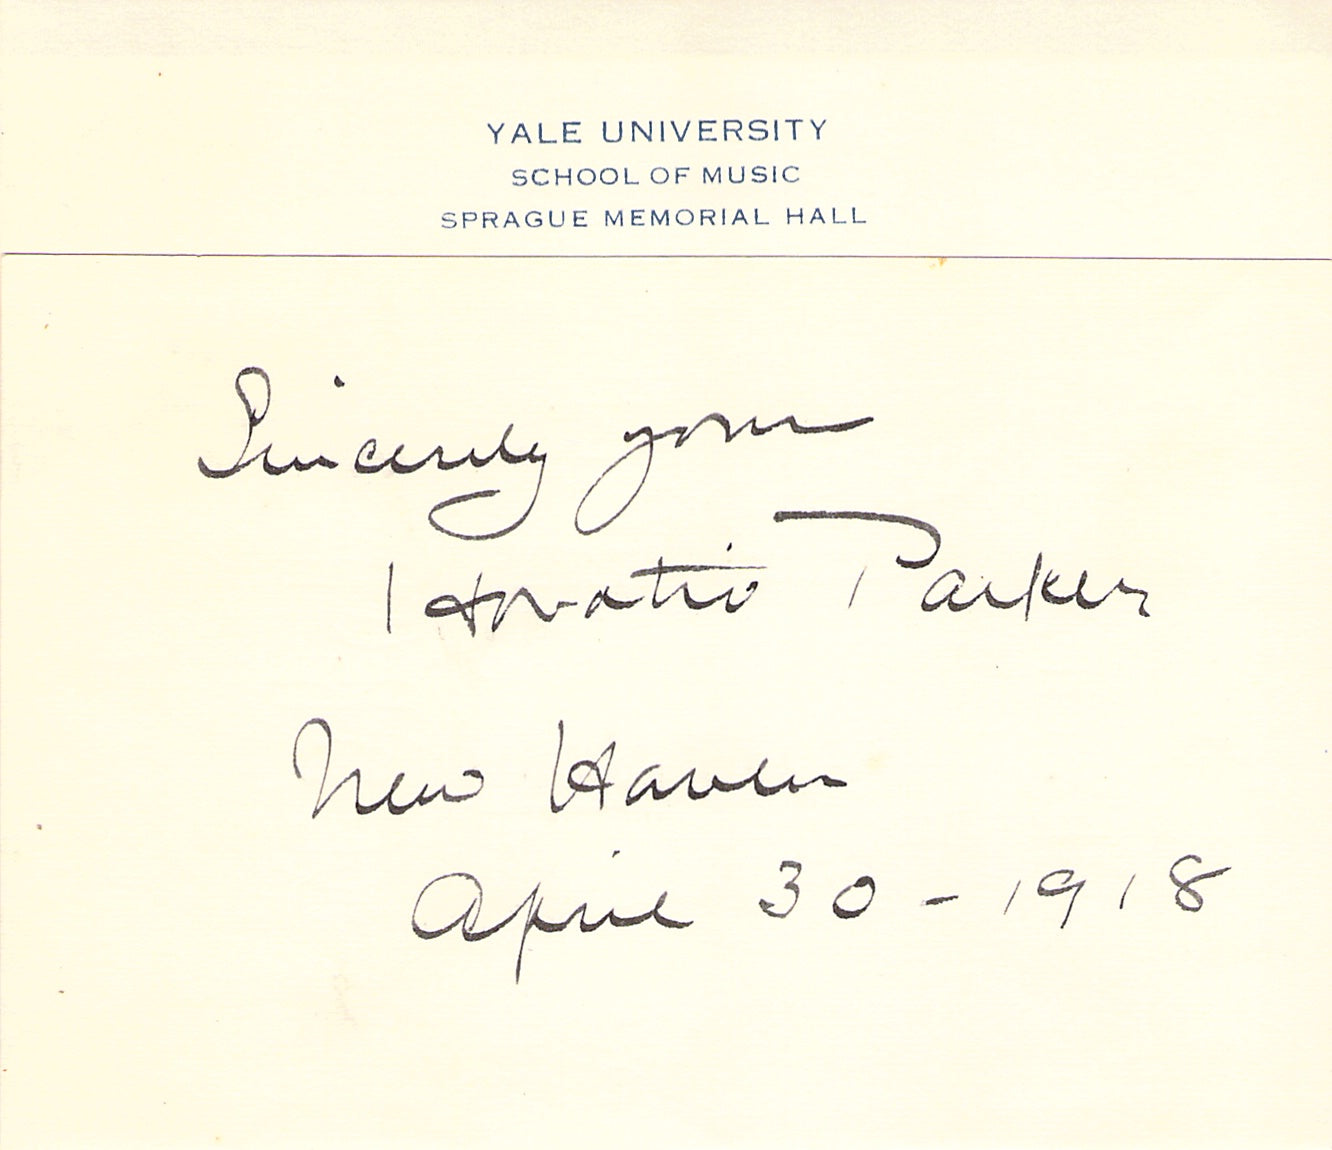 YALE UNIVERSITY
SCHOOL OF MUSIC
SPRAGUE MEMORIAL HALL
Sincerely yours
Horatio Parker
New Haven
April 30 - 1918